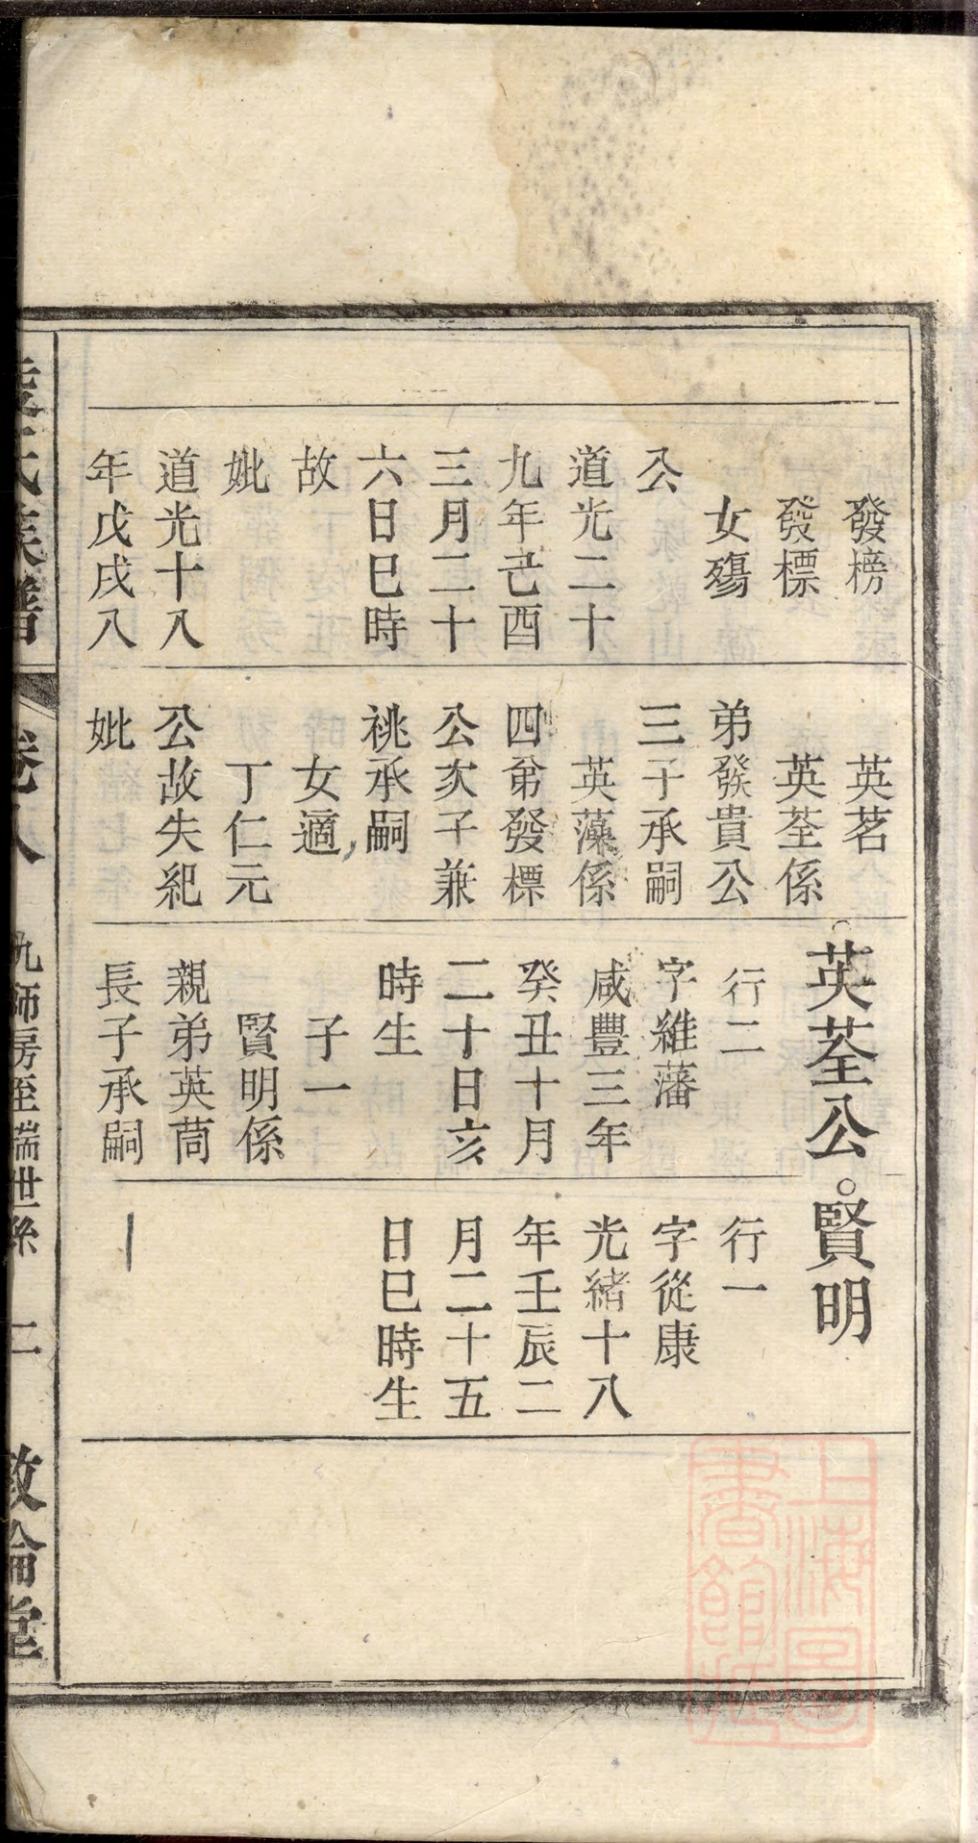 發榜
發標
女殤
公
道光二十
九年己酉
三月二十
六日巳時
故
妣
道光十八
年戊戌八
英茗
英荃係
弟發貴公
三子承嗣
英藻係
四弟發標
公次子兼
祧承嗣
女適
丁仁元
公故失紀
妣
英荃公
行二
字維藩
咸豐三年
癸丑十月
二十日亥
時生
子一
賢明係
親弟英茼
長子承嗣
賢明
行一
字從康
光緒十八
年壬辰二
月二十五
日巳時生
氏族譜
卷八
九師房至瑞世系
二
敦倫堂
上海圖
書館藏